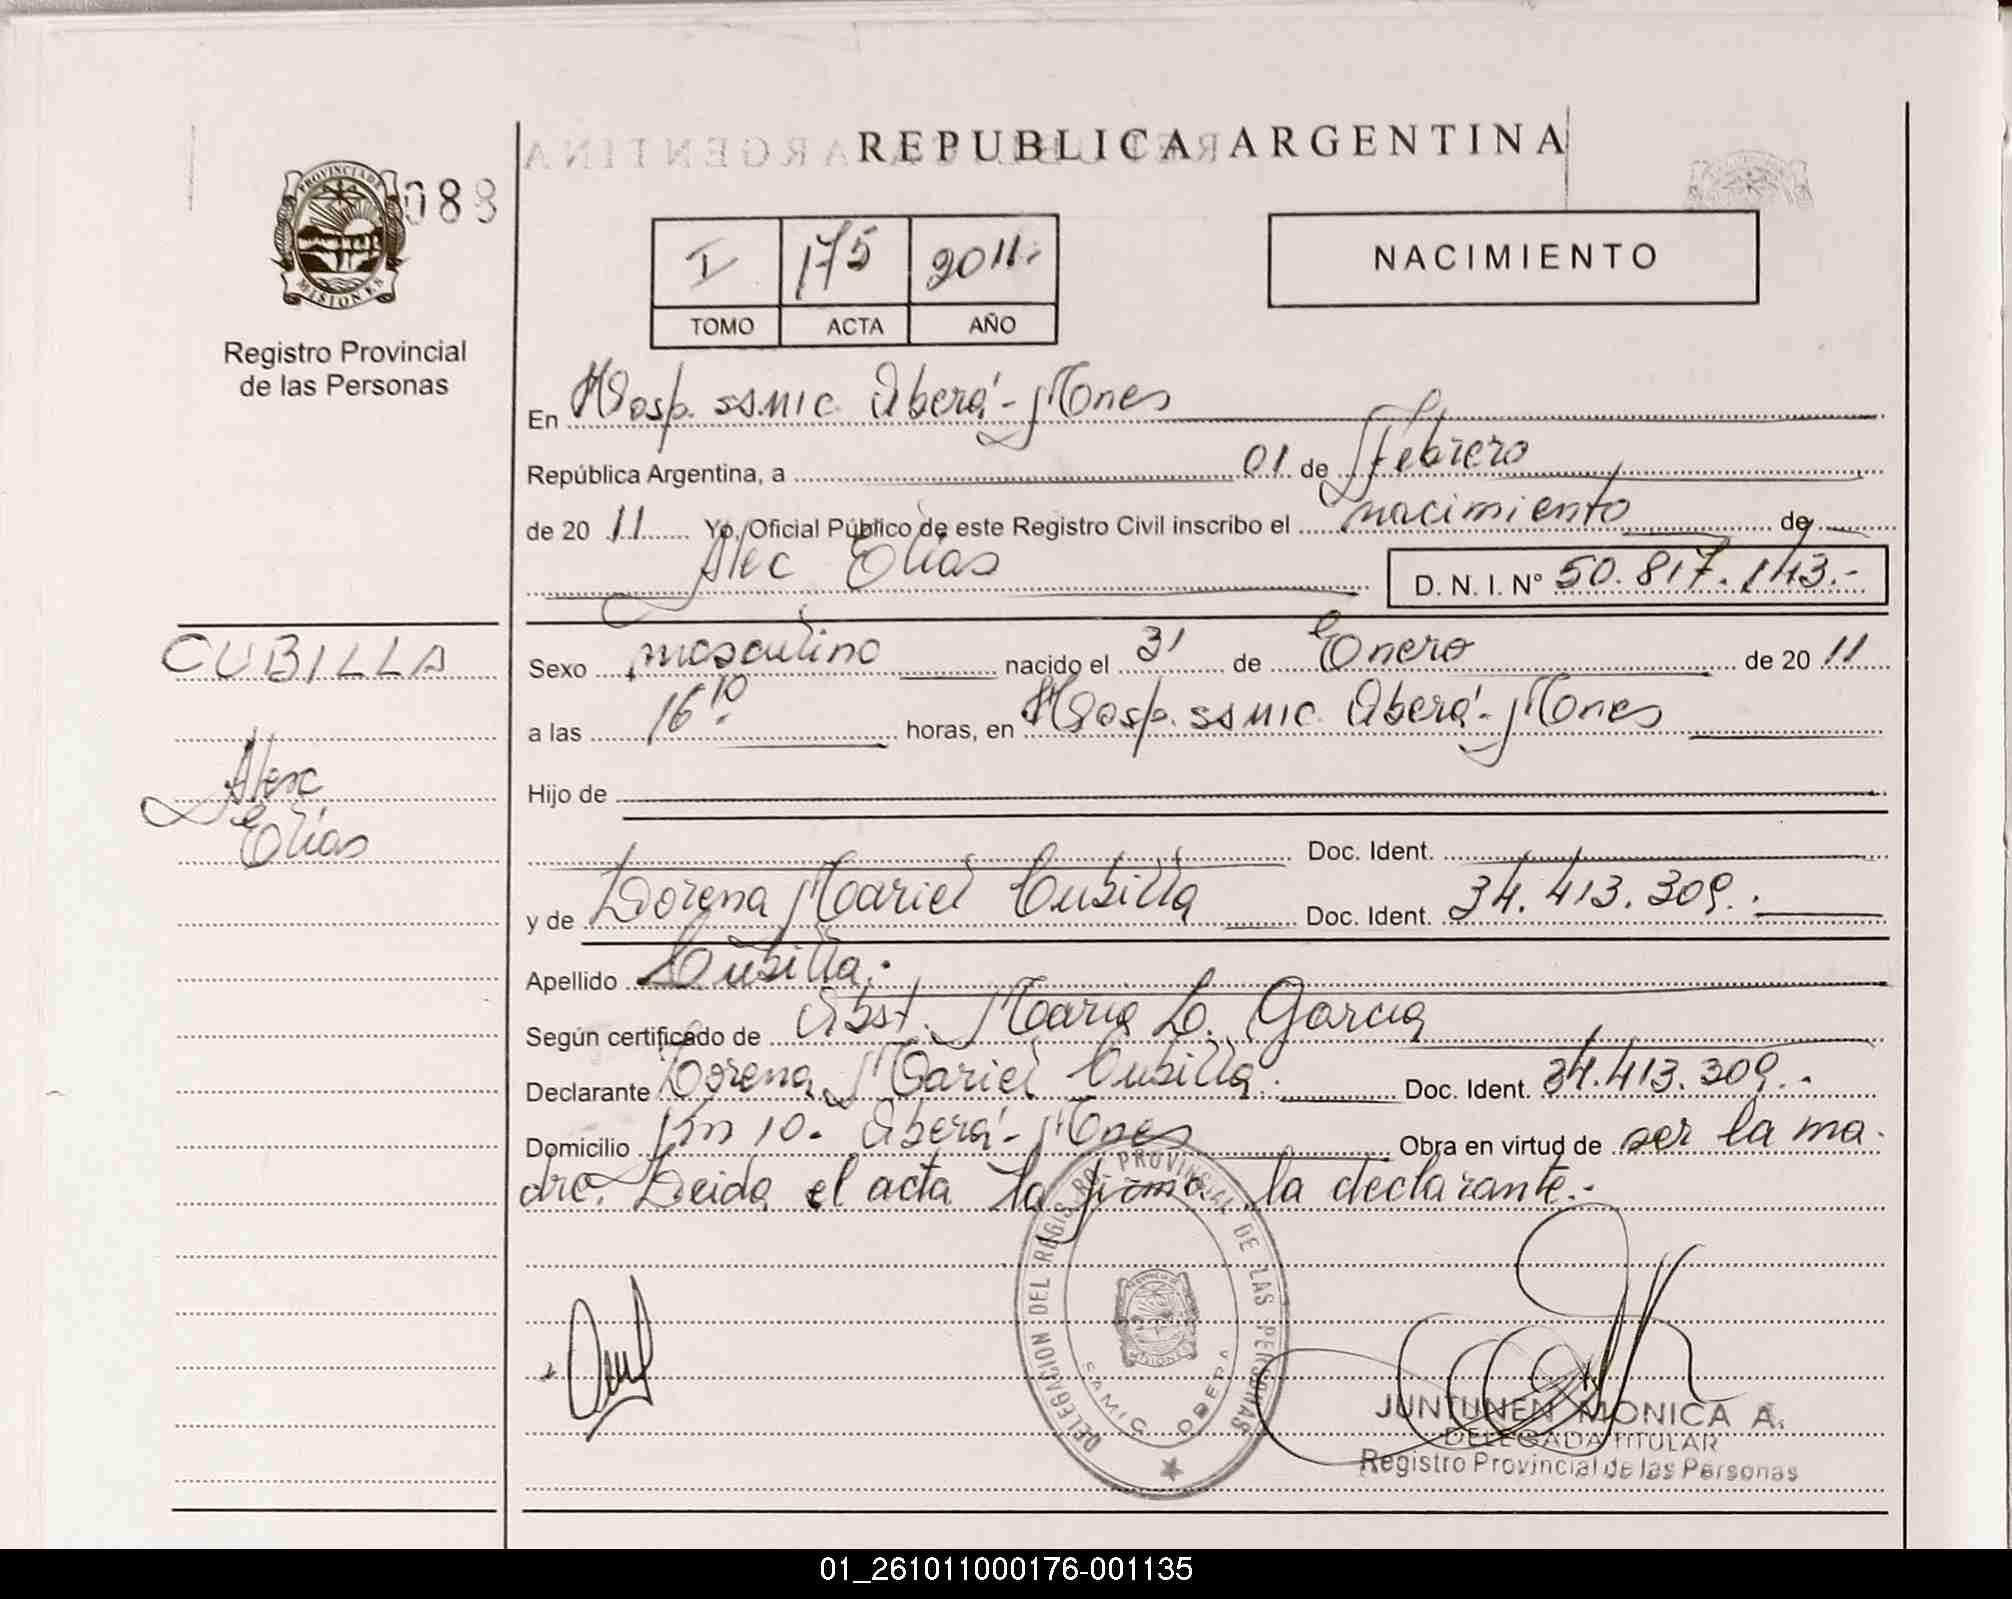 REPUBLICA ARGENTINA
PROVINCIA DE
MISIONES
088
Registro Provincial
de las Personas
I 175 2011.
TOMO ACTA AÑO
NACIMIENTO
En Hosp. SAMIC Oberá - Mones
República Argentina, a 01 de Febrero
de 2011 Yo, Oficial Público de este Registro Civil inscribo el nacimiento de
Alec Elías
D. N. I. Nº 50.817.143.-
CUBILLA
Alec
Elías
Sexo masculino nacido el 31 de Enero de 2011
a las 16:10 horas, en Hosp. SAMIC Oberá - Mones
Hijo de
Doc. Ident.
y de Lorena Mariel Cubilla Doc. Ident. 34.413.309.
Apellido Cubilla.
Según certificado de Obst. Maria L. Garcia
Declarante Lorena Mariel Cubilla. Doc. Ident. 34.413.309.
Domicilio Km 10. Oberá - Mones Obra en virtud de ser la ma-
dre. Leida el acta la firma la declarante.-
DELEGACION DEL REGISTRO PROVINCIAL DE LAS PERSONAS
SAMIC OBERA
JUNTUNEN MONICA A.
DELEGADA TITULAR
Registro Provincial de las Personas
01_261011000176-001135